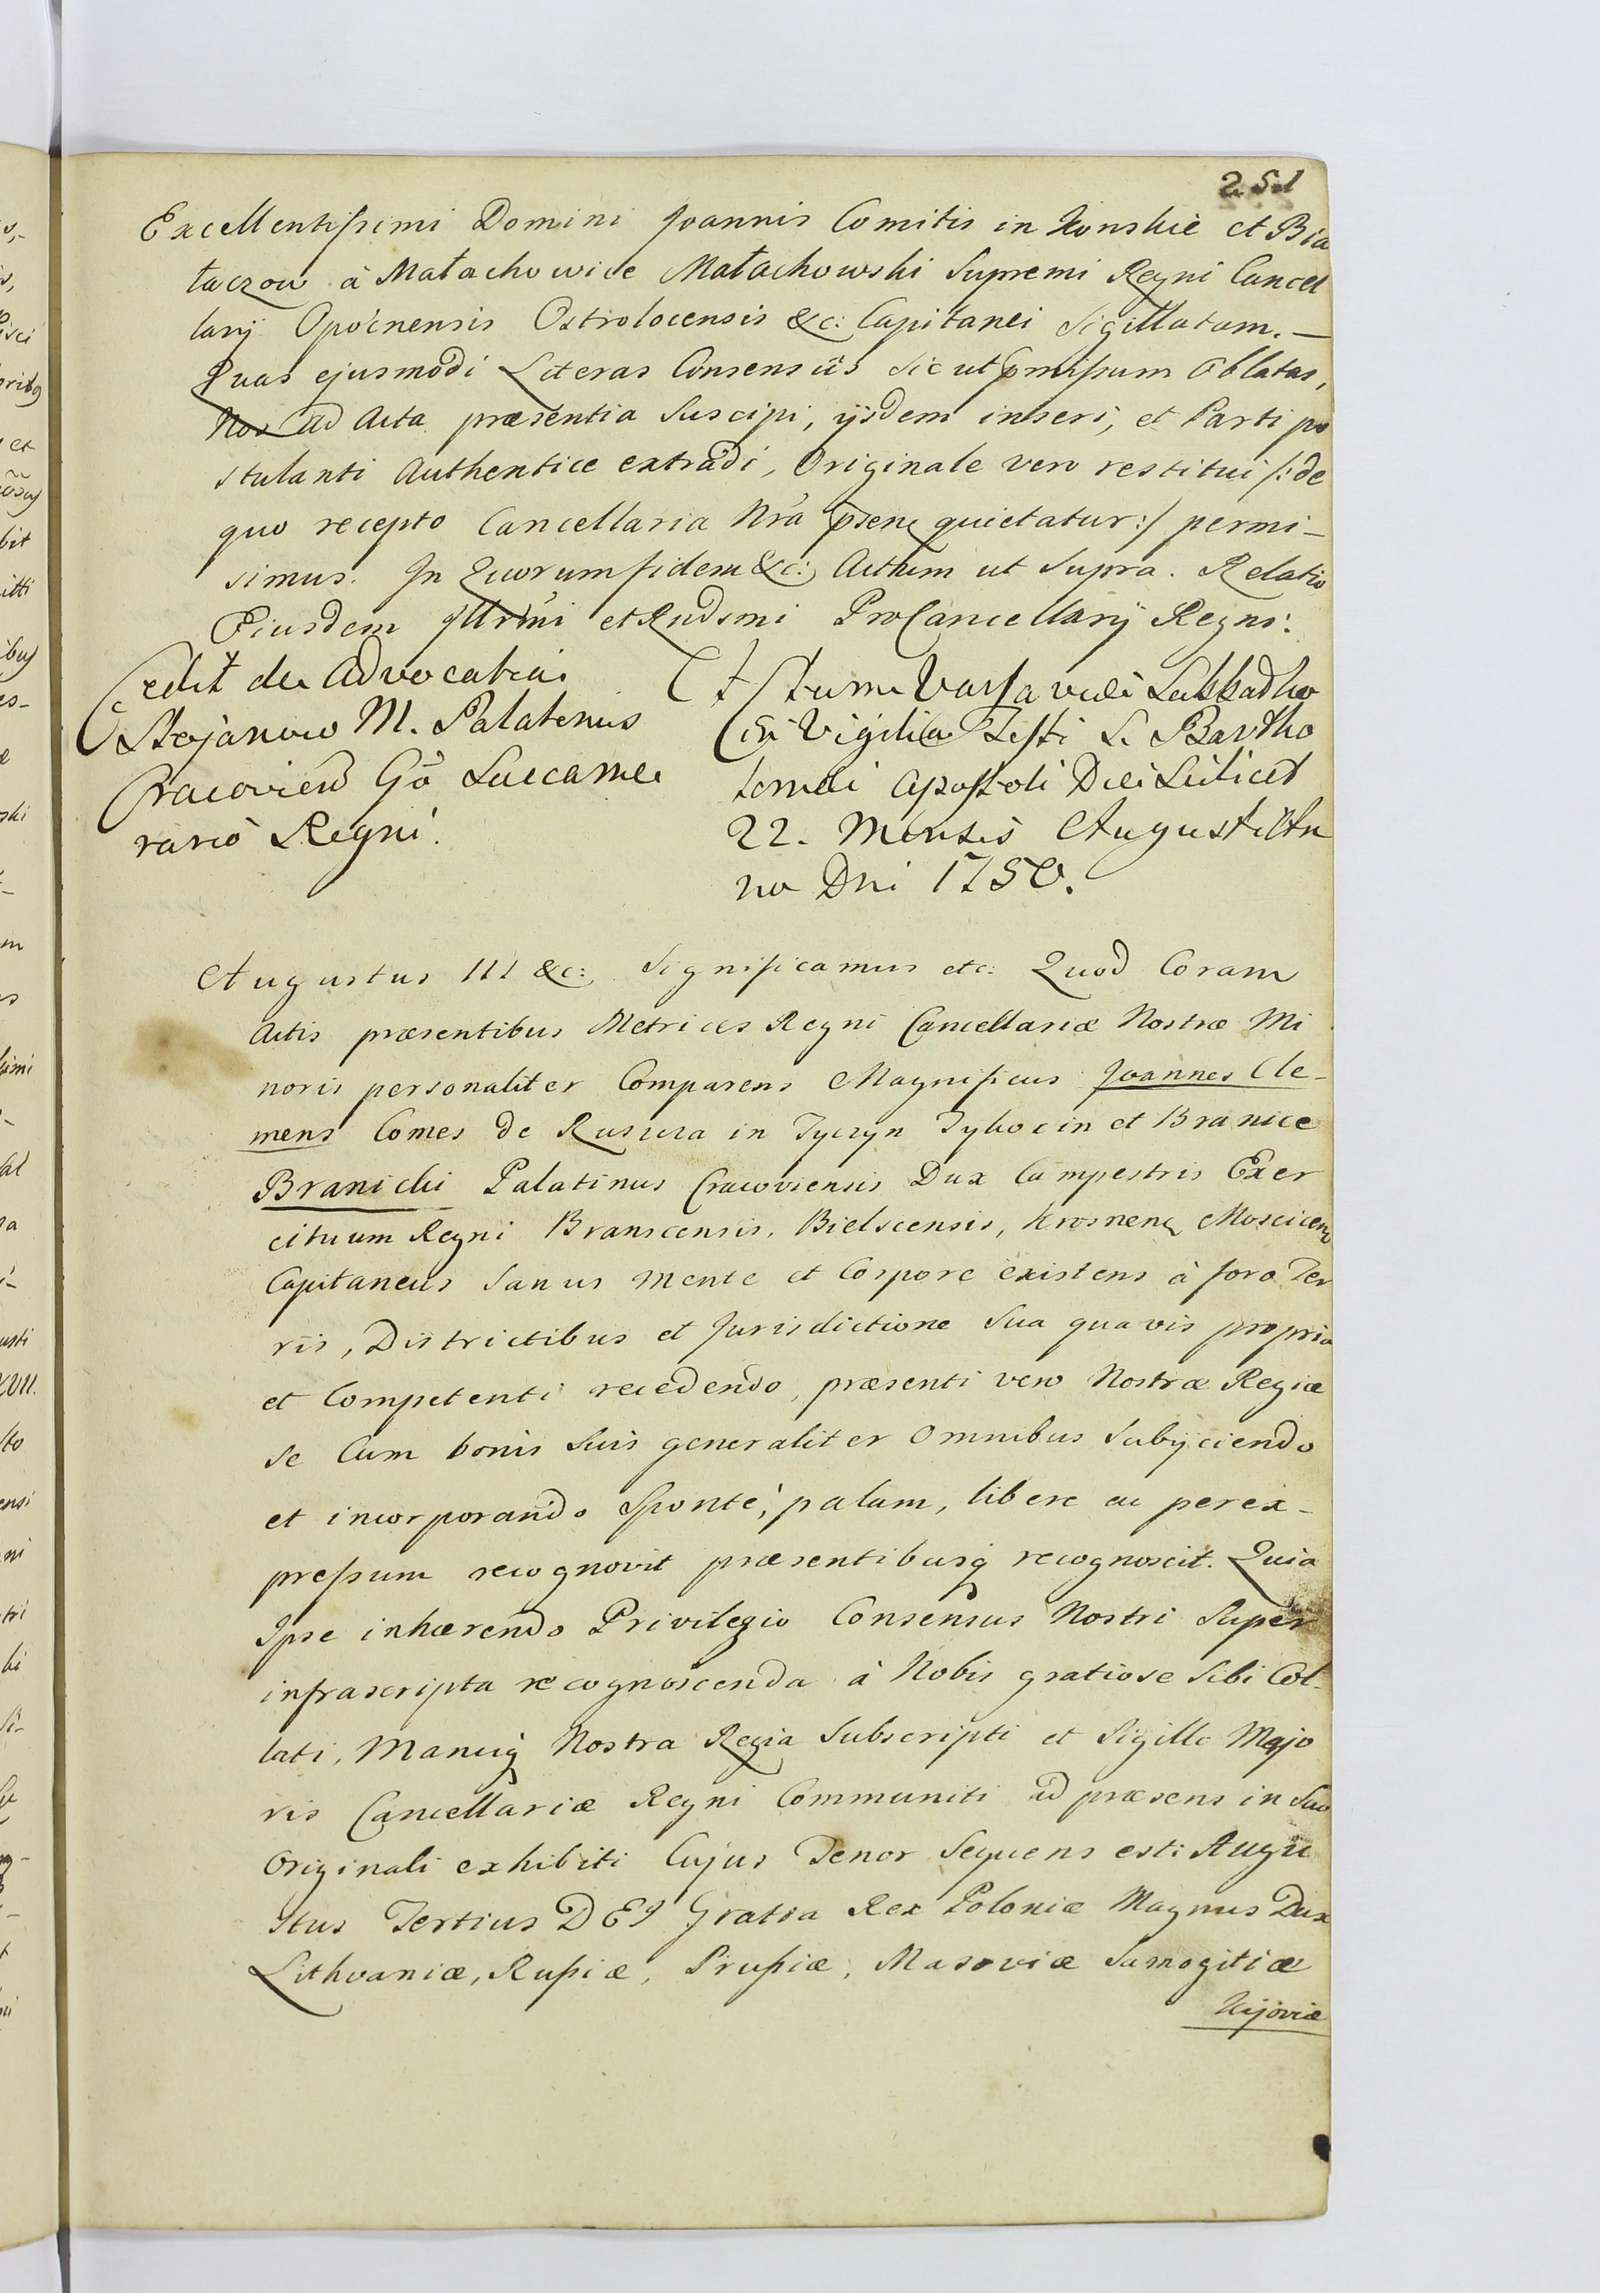 251
Excellentissimi Domini Joannis Comitis in Konskie et Bia
łaczow à Małachowice Małachowski Supremi Regni Cancel
larij Opocnensis Ostrolocensis &c: Capitanei Sigillatam. —
Quas ejusmodi Literas Consensûs sic ut pmissum Oblatas,
Nos ad Acta præsentia Suscipi, ijsdem inseri, et Parti po
stulanti Authentice extrâdi, Originale vero restitui /: de
quo recepto Cancellaria Nra quietatur :/ permi-
simus. In Quorum fidem &c: Actum ut Supra. Relatio
Eiusdem Illrmi et Rndsmi ProCancellarij Regni.
Cedit de Advocatia
Stojanow M. Palatinus
Cracovien Gò Succame
rario Regni.
Actum Varsaviæ Sabbatho
in Vigilia Festi S. Bartho
lomæi Apostoli Die Scilicet
22. Mensis Augusti An
no Dni 1750.
Augustus III &c: Significamus etc: Quod Coram
Actis præsentibus Metrices Regni Cancellariæ Nostræ Mi
noris personaliter Comparens Magnificus Joannes Cle-
mens Comes de Ruszcza in Tyczyn Tykocin et Branice
Branicki Palatinus Cracoviensis Dux Campestris Exer
cituum Regni Branscensis, Bielscensis, Krosnen Moscicen
Capitaneus Sanus Mente et Corpore existens à foro Ter
ris, Districtibus et Jurisdictione Sua quavis propria
et Competenti recedendo, præsenti vero Nostræ Regiæ
Se Cum bonis Suis generaliter Omnibus Subijciendo
et incorporando Sponte, palam, libere ac perex-
pressum recognovit præsentibusq recognoscit. Quia
Ipse inhærendo Privilegio Consensus Nostri Super
infrascripta recognoscenda à Nobis gratiose Sibi Col-
lati, Manuq Nostra Regia Subscripti et Sigillo Majo
ris Cancellariæ Regni Communiti ad præsens in Suo
Originali exhibiti Cujus Tenor Sequens est: Augu
stus Tertius DEI Gratia Rex Poloniæ Magnus Dux
Lithvaniæ, Russiæ, Prussiæ, Masoviæ Samogitiæ
Kijoviæ